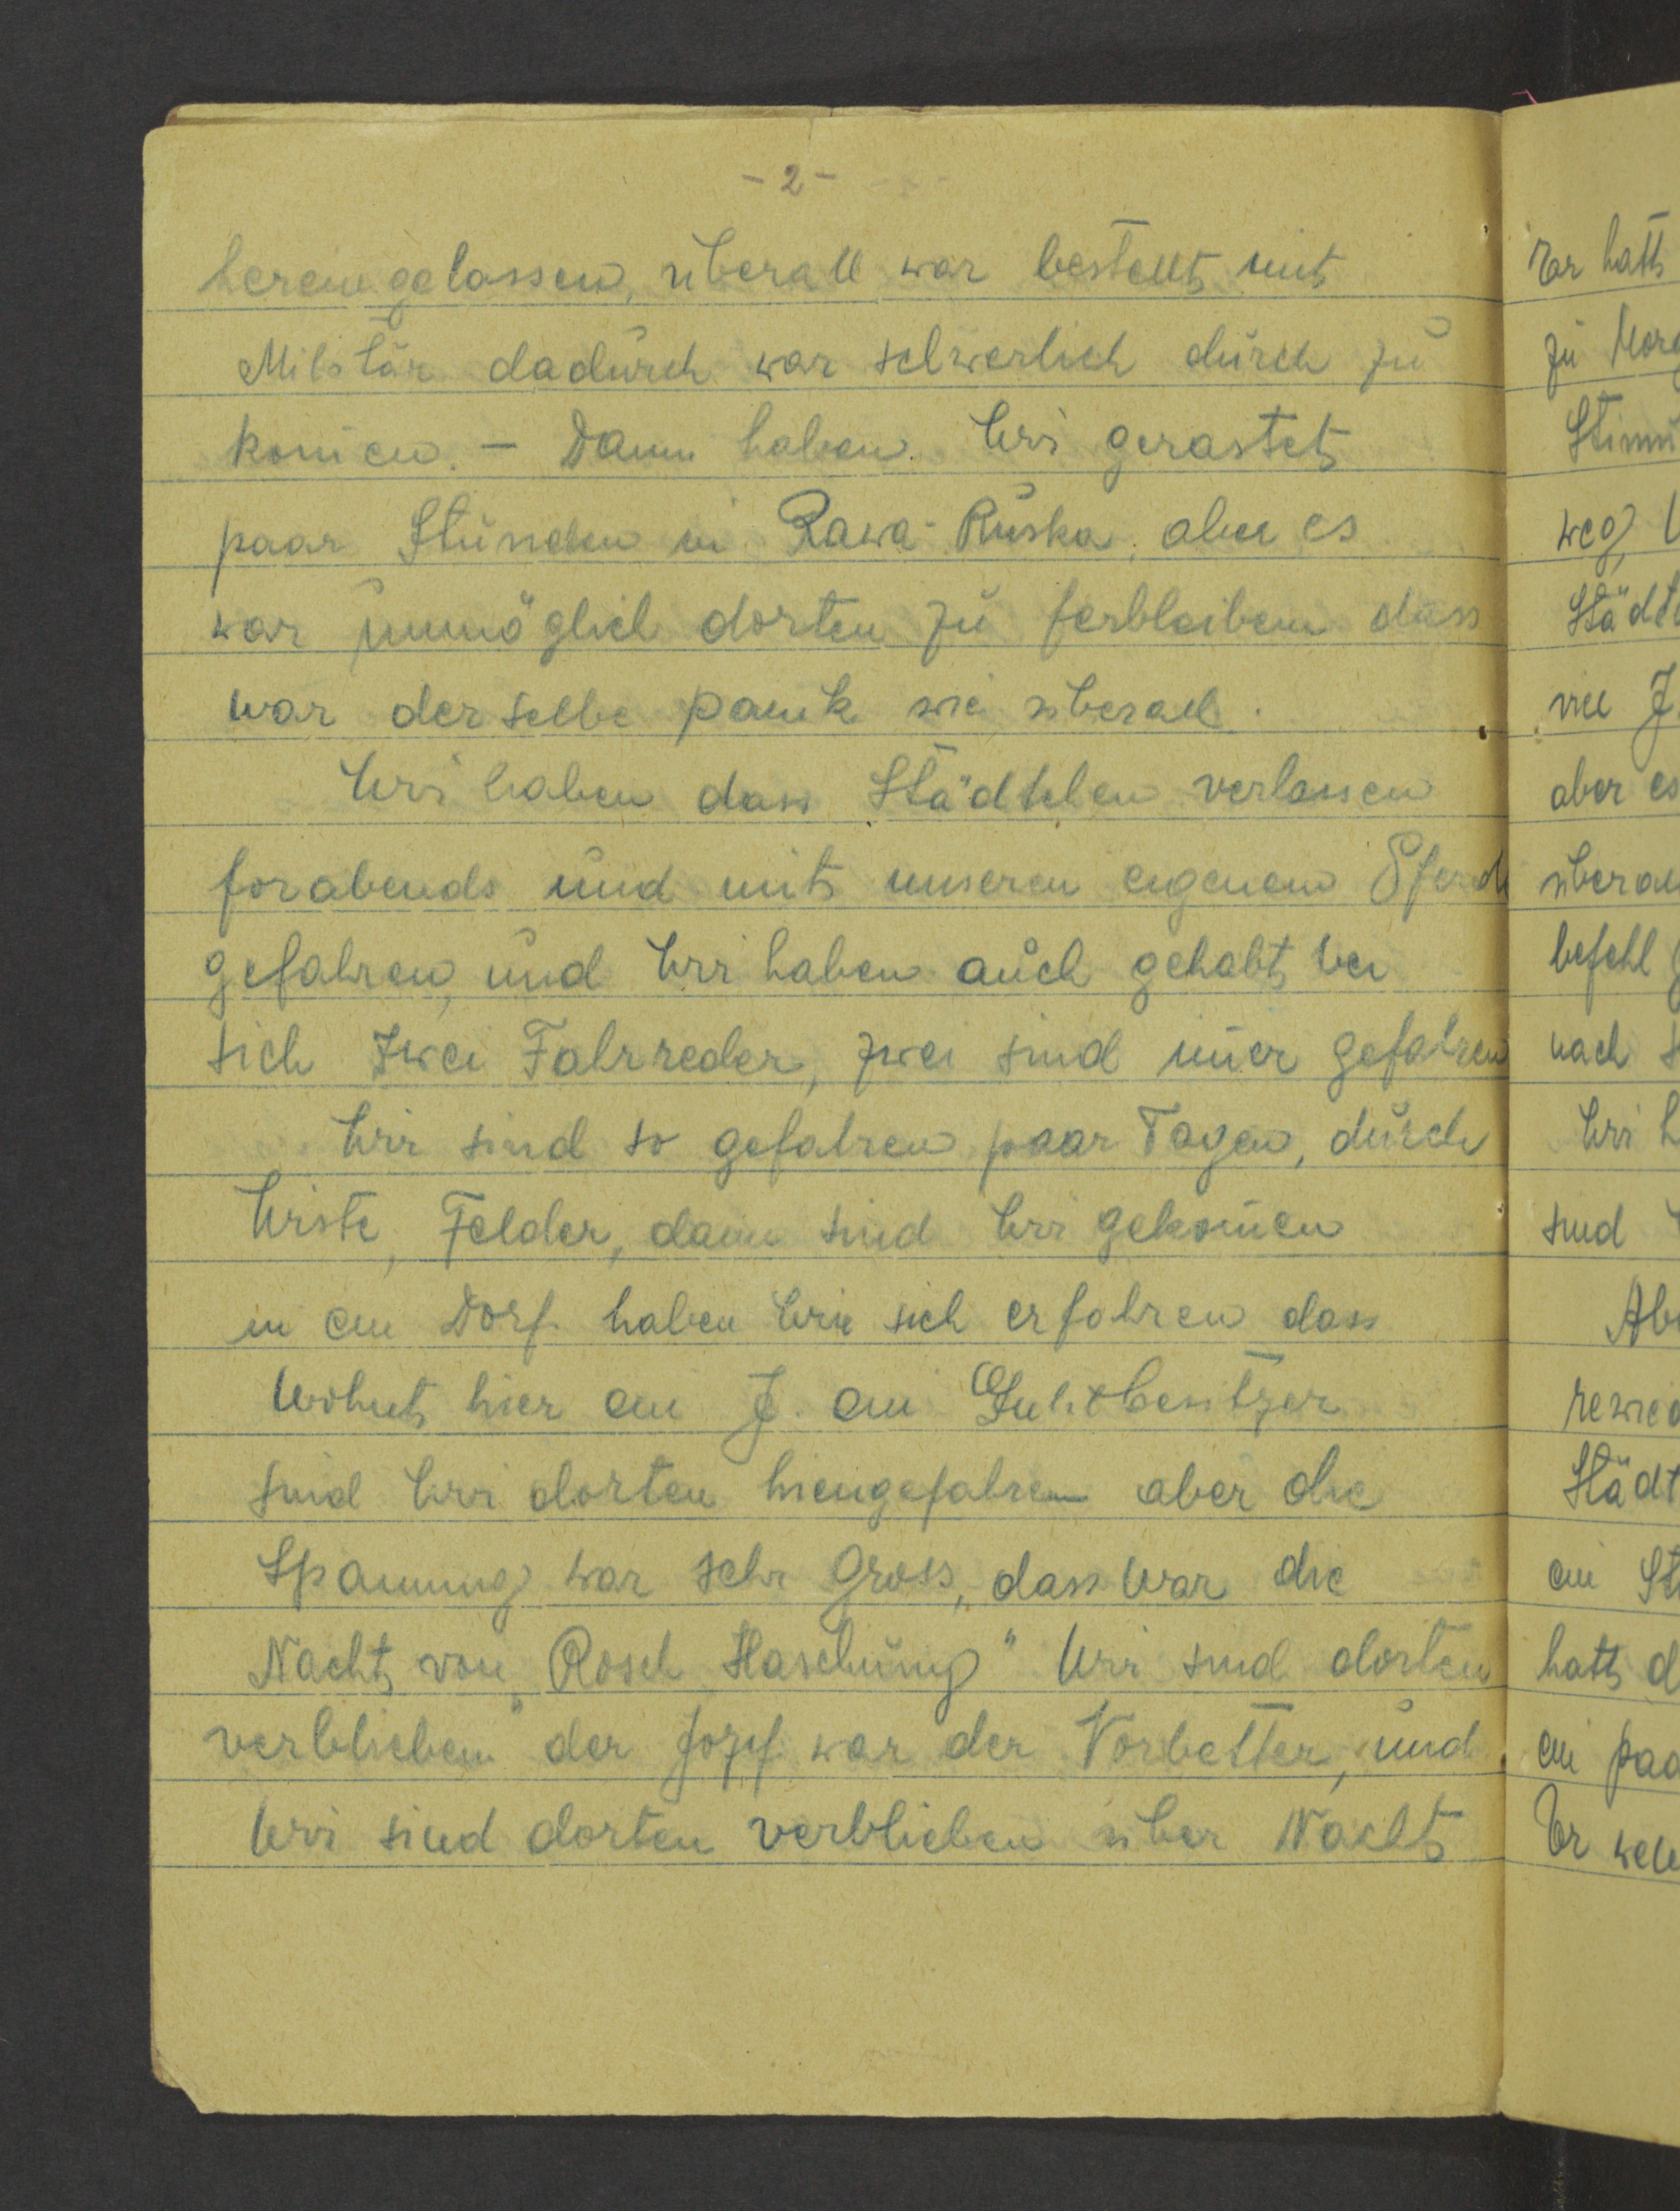 - 2 -
hereingelassen, überall war bestellt mit
Militär dadurch war schwerlich durch zu
kom̄en. - Dann haben Wir gerastet
paar Stunden in Rawa-Ruska, aber es
war unmöglich dorten zu ferbleiben dass
war derselbe panik wie überall.
Wir haben dass Städtchen verlassen
forabends und mit unseren eigenen Pferde
gefahren, und Wir haben auch gehabt bei
sich zwei Fahrreder, zwei sind im̄er gefahren
Wir sind so gefahren paar Tagen, durch
Wiste, Felder, dann sind Wir gekom̄en
in ein Dorf haben Wir sich erfahren dass
Wohnt hier ein J. ein Gutsbesitzer
sind Wir dorten hiengefahren aber die
Spannung war sehr Gross, dass war die
Nacht von "Rosch Haschung" Wir sind dorten
verblieben der Jozef war der Vorbetter, und
Wir sind dorten verblieben über Nacht
Er hatt
zu
weg,
Städt
viel J
aber es
überall
befehl
nach
Wir
sind
Städt
ein St
hatt d
ein paa
Er